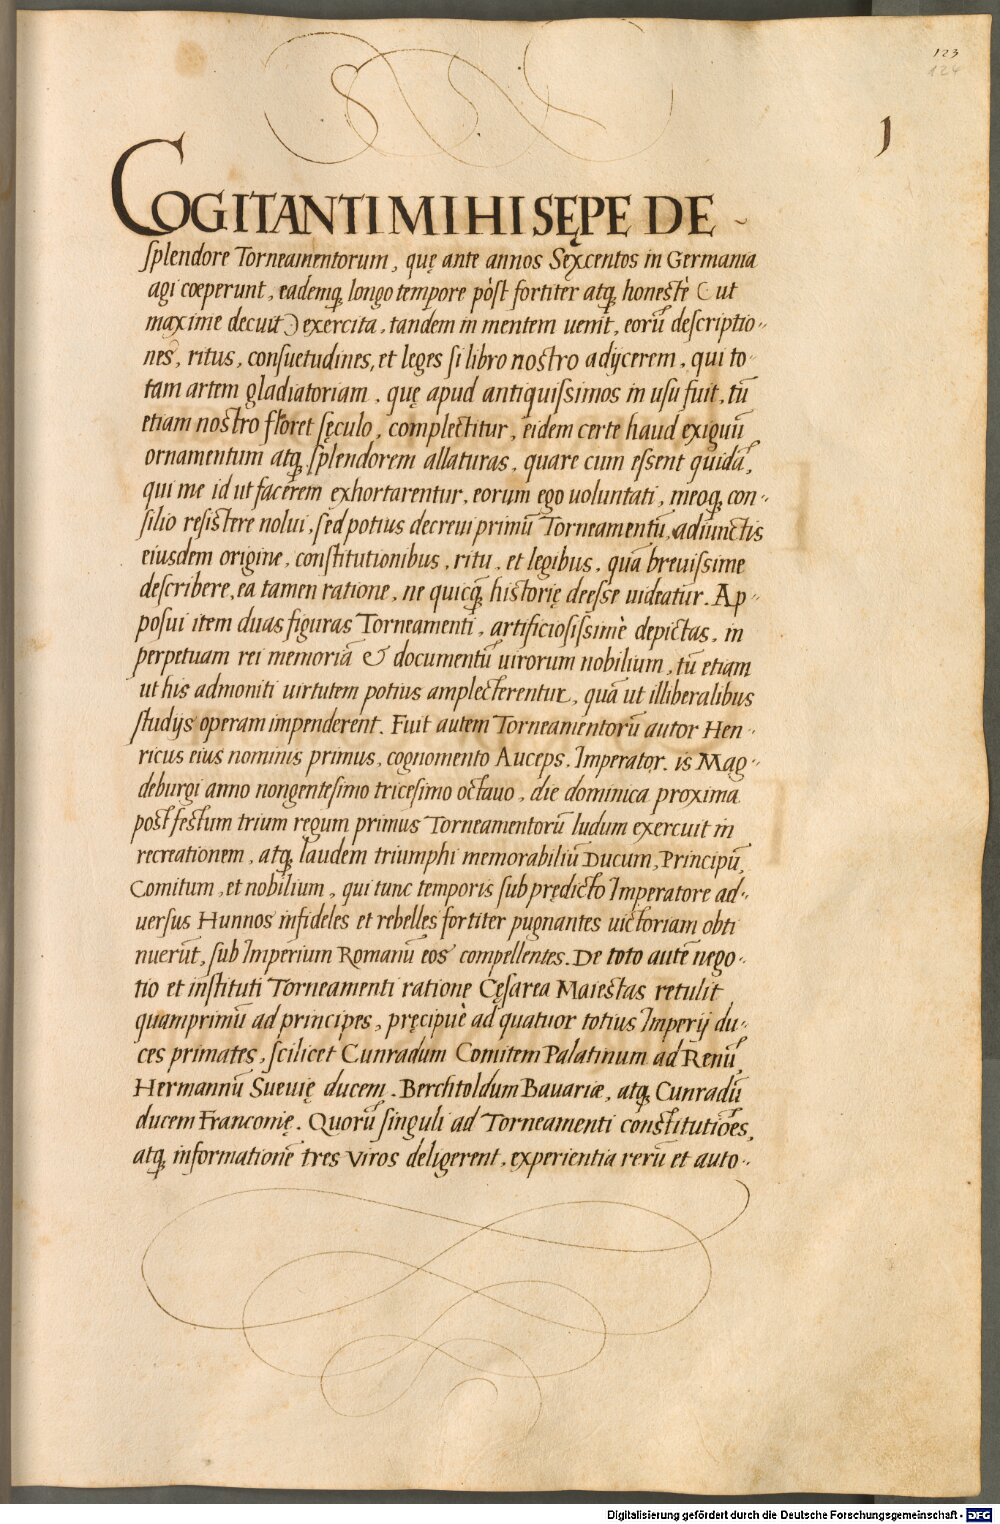 123
124
J
COGITANTI MIHI SĘPE DE
splendore Torneamentorum, quę ante annos Sexcentos in Germania
agi cœperunt, eademq, longo tempore pòst fortiter atq, honestè ( ut
maxime decuit ) exercita, tandem in mentem uenit, eorū descriptio-
nes, ritus, consuetudines, et leges si libro nostro adijcerem, qui to-
tam artem gladiatoriam, quę apud antiquissimos in usu fuit, tū
etiam nostro floret sęculo, complectitur, eidem certe haud exiguū
ornamentum atq, splendorem allaturas, quare cum essent quidā,
qui me id ut facerem exhortarentur, eorum ego uoluntati, meoq, con-
silio resistere nolui, sed potius decreui primū Torneamentū, adiunctis
eiusdem origine, constitutionibus, ritu, et legibus, quā breuissime
describere, ea tamen ratione, ne quicq̄, historię deesse uideatur. Ap-
posui item duas figuras Torneamenti, artificiosissimè depictas, in
perpetuam rei memoriā & documentū uirorum nobilium, tū etiam
ut his admoniti uirtutem potius amplecterentur, quā ut illiberalibus
studijs operam impenderent. Fuit autem Torneamentorū autor Hen-
ricus eius nominis primus, cognomento Auceps. Imperator. is Mag-
deburgi anno nongentesimo tricesimo octauo, die dominica proxima
post festum trium regum primus Torneamentorū ludum exercuit in
recreationem, atq, laudem triumphi memorabiliū Ducum, Principū,
Comitum, et nobilium, qui tunc temporis sub prędicto Imperatore ad-
uersus Hunnos infideles et rebelles fortiter pugnantes uictoriam obti
nuerūt, sub Imperium Romanū eos compellentes. De toto autē nego-
tio et instituti Torneamenti ratione Cęsarea Maiestas retulit
quamprimū ad principes, pręcipuè ad quatuor totius Imperij du-
ces primates, scilicet Cunradum Comitem Palatinum ad Renū,
Hermannū Sueuię ducem. Berchtoldum Bauariæ, atq, Cunradū
ducem Franconię. Quorū singuli ad Torneamenti constitutiōes,
atq, informationē tres viros deligerent, experientia rerū et auto-
Digitalisierung gefördert durch die Deutsche Forschungsgemeinschaft - DFG